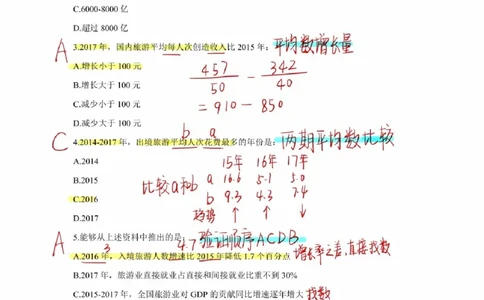 C.6000-8000 亿
D.超过 8000 亿
A 3.2017 年，国内旅游平均每人次创造收入比 2015 年：平均数增长量
A.增长小于 100 元
457/50 - 342/40
B.增长大于 100 元
C.减少小于 100 元
= 910 - 850
D.减少大于 100 元
b a
C 4.2014-2017 年，出境旅游平均人次花费最多的年份是：两期平均数比较
A.2014
15年 16年 17年
B.2015
比较a和b a 16.6 5.1 5.0
C.2016
b 9.3 4.3 7.4
D.2017
趋势 ↑ ↑ ↓
A 5.能够从上述资料中推出的是：4.7 验证顺序ACDB
3
A.2016 年，入境旅游人数增速比 2015 年降低 1.7 个百分点 增长率之差，直接找数
B.2017 年，旅游业直接就业占直接和间接就业比重不到 30%
C.2015-2017 年，全国旅游业对 GDP 的贡献同比增速逐年增大 找数